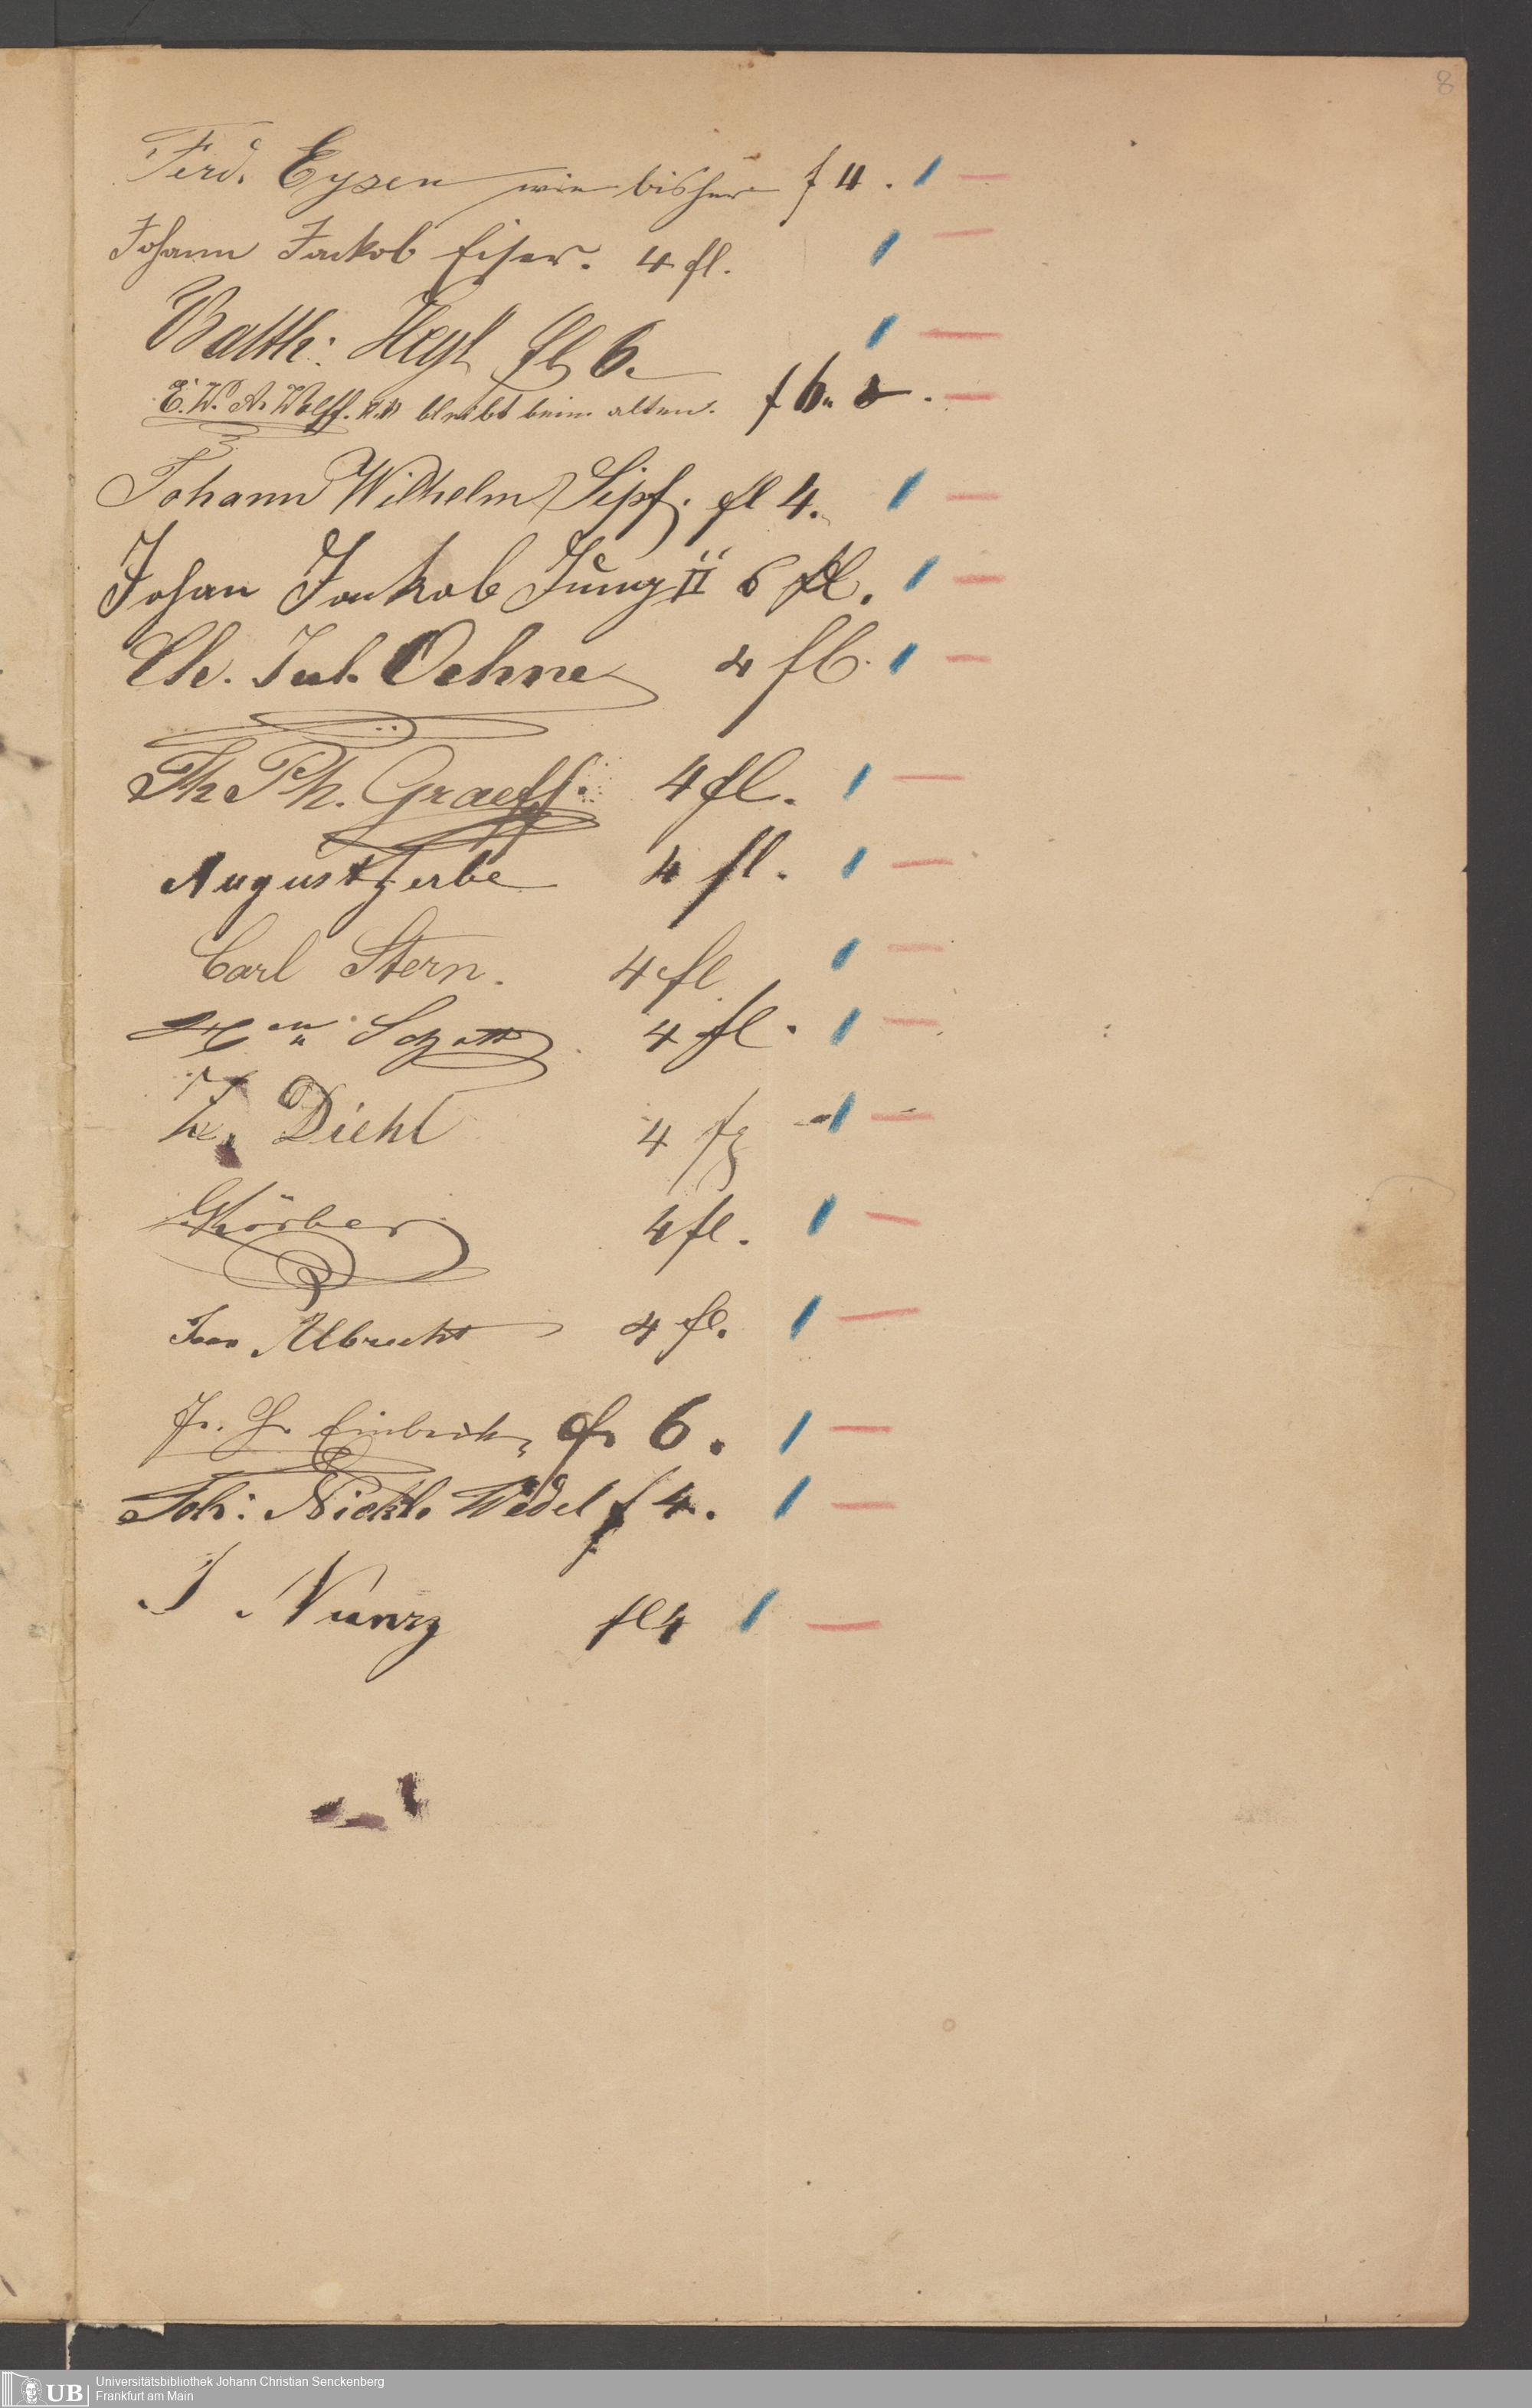 8
Ferd. Eysen wie bisher f 4.
Johann Jackob Eiser. 4 fl.
Balth: Heyl fl 6.
E. W. A. Wolff. bleibt beim alten. f 6.
Johann Wilhelm Sipf. fl 4.
Johan Jackob Jung II 6 fl.
Ch. Jul. Oehne 4 fl.
Th Ph. Graeff. 4 fl.
August Zerbe 4 fl.
Carl Stern. 4 fl
Schott 4 fl.
Diehl 4 f
Körber 4 fl.
Albrecht 4 fl.
Einbeck, 6.
Joh: Nickl. Wedel f 4.
J. fl 4
UB Universitätsbibliothek Johann Christian Senckenberg
Frankfurt am Main